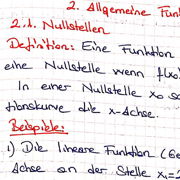 2. Allgemeine Funk
2.1. Nullstellen
Definition: Eine Funktion
eine Nullstelle wenn f(x0)
In einer Nullstelle x0 sc
tionskurve die x-Achse.
Beispiele:
1) Die lineare Funktion (Ge
Achse an der Stelle x1=2